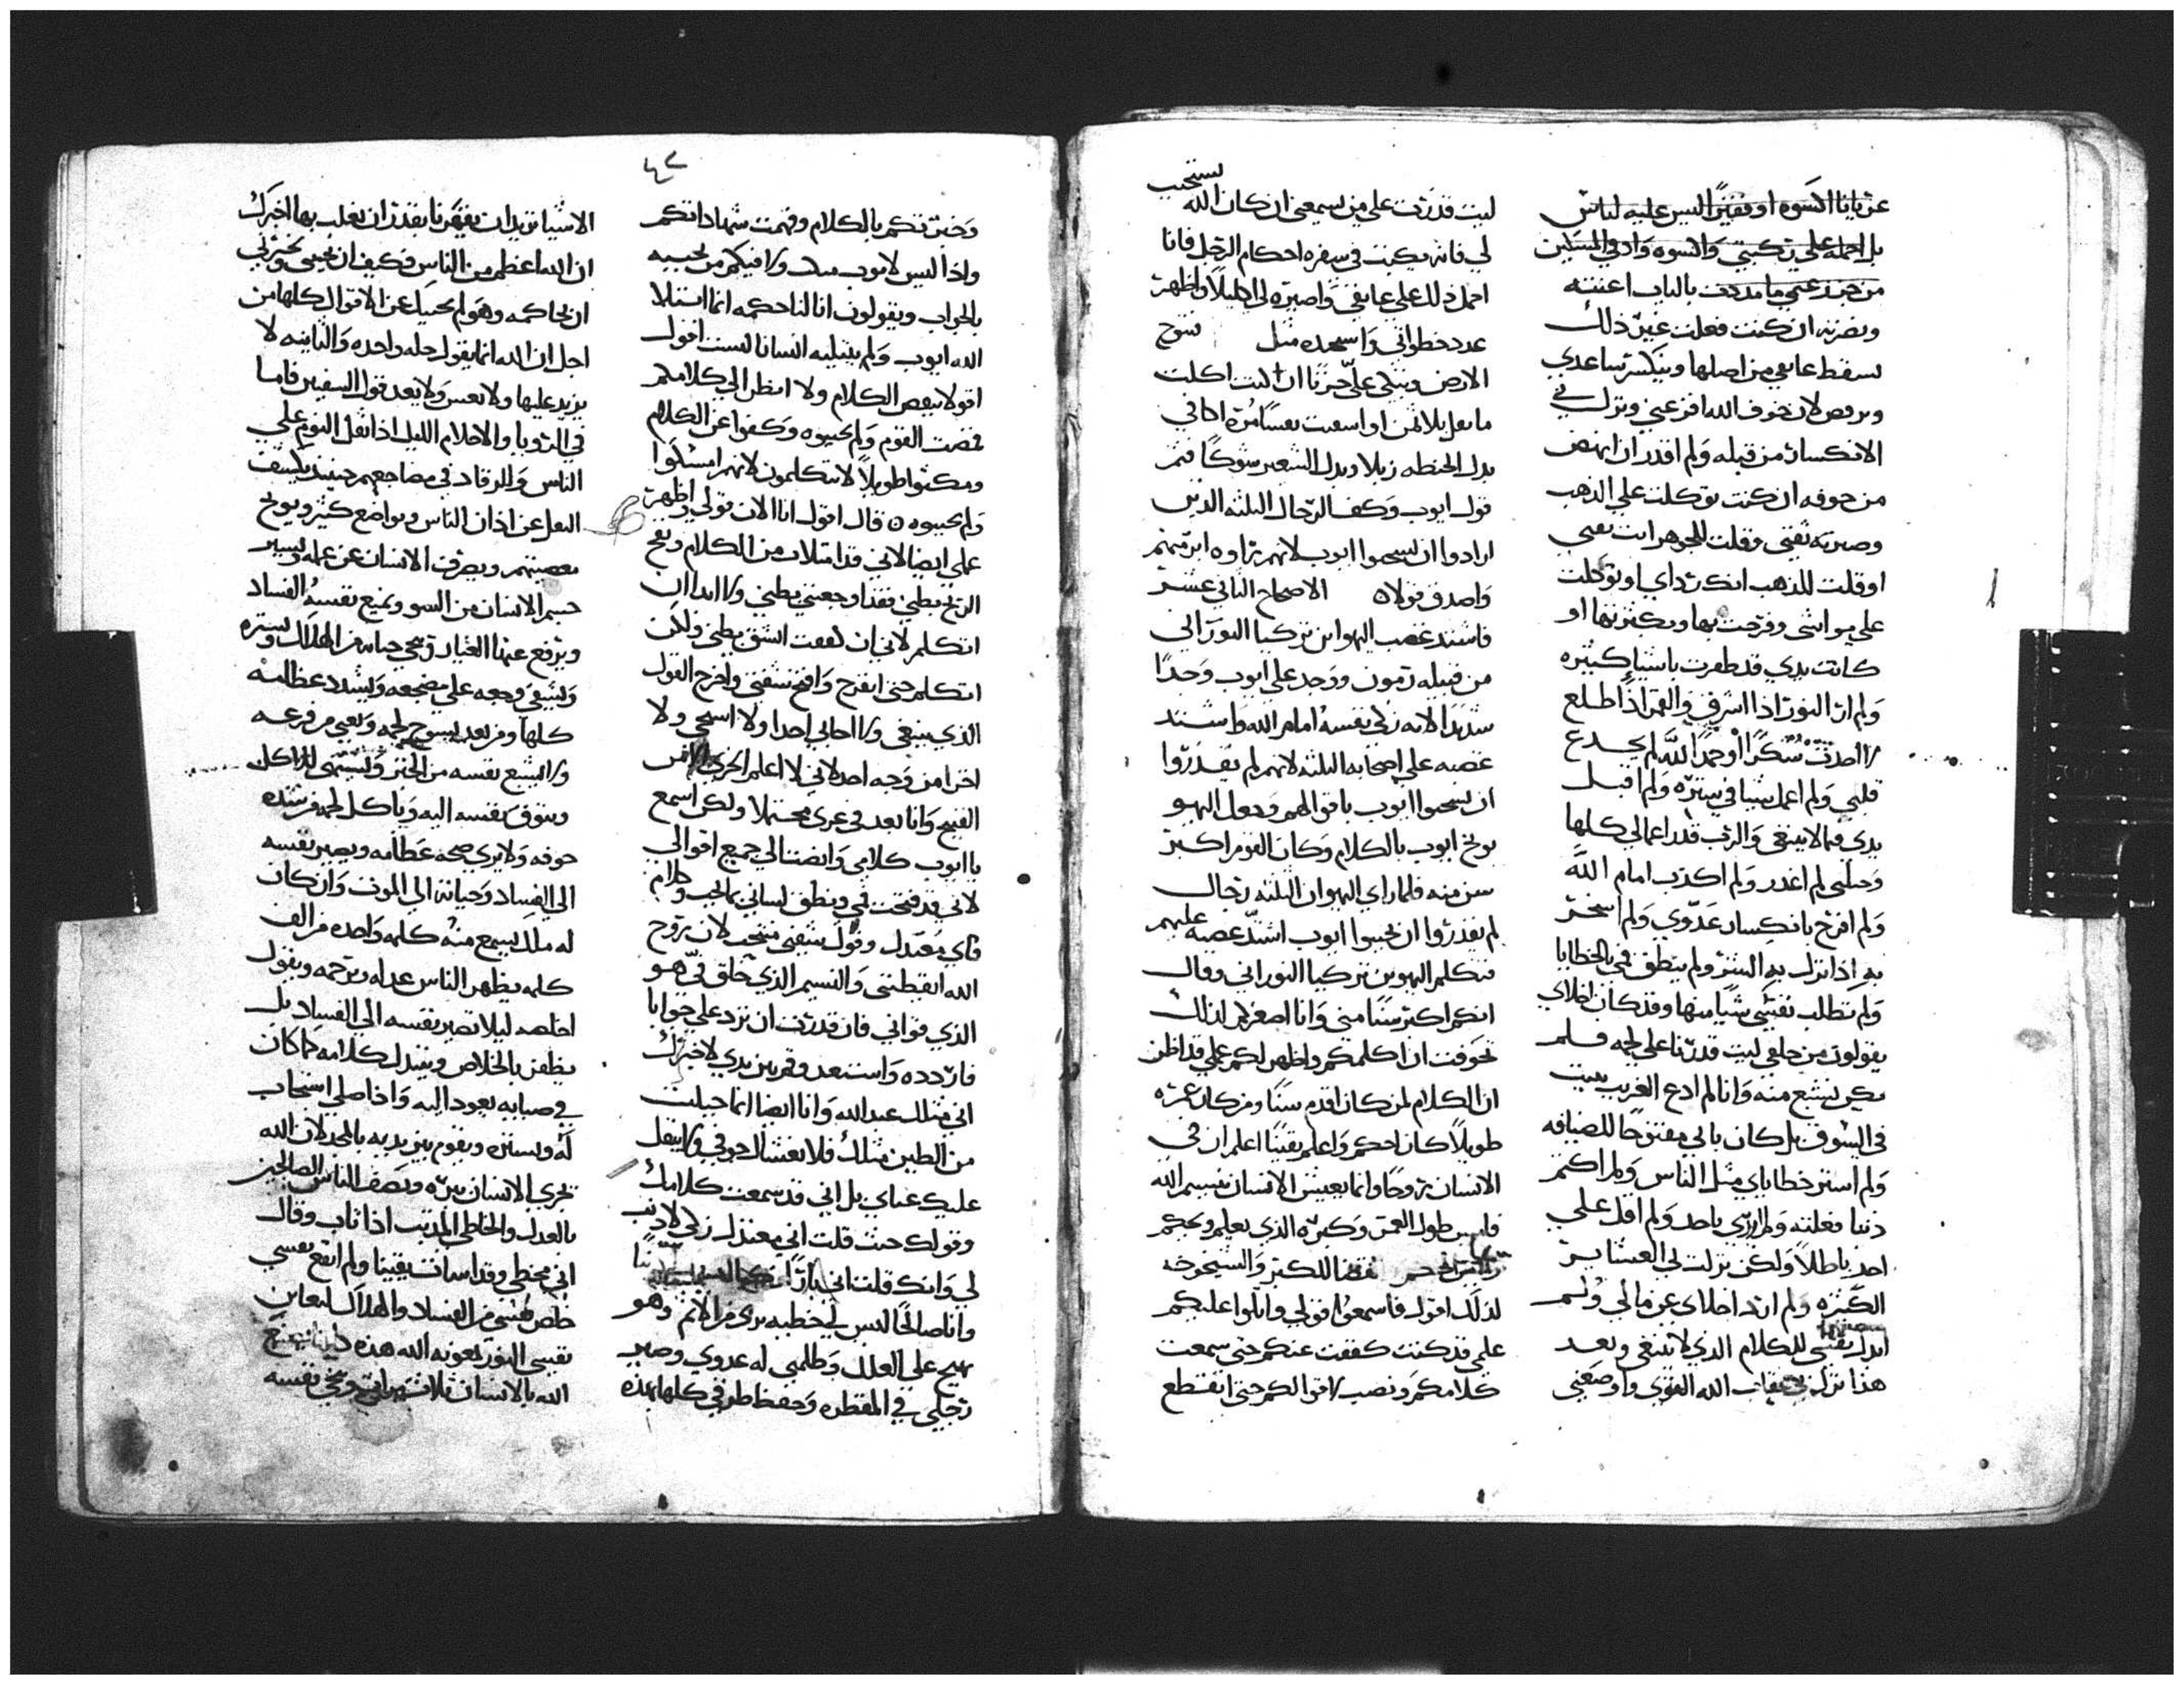 عريانا اكسوه او فقيرًا ليس عليه لباس
بل احمله علي ركبتي واكسوه وادفي المسكين
من جزز غنمي ما مددت بالباب اعنته
ونصرته ان كنت فعلت غير ذلك
سقط عاتقي من اصلها وينكسر ساعدي
لان خوف الله افزعني ونزل بي
الانكسار من قبله ولم اقدر ان انهض
من خوفه ان كنت توكلت علي الذهب
وصيرته ثقتي وقلت للجوهر انت
او قلت للذهب انك رداي او توكلت
علي مواشي وفرحت بها وبكثرتها او
كانت يدي قد ظفرت باشيا كثيره
ولم ار النور اذا اشرق والقمر اذا طلع
شكرًا وحمدًا لله لم يخدع
قلبي ولم اعمل شيا في ستره ولم اقبل
يدي فيما لا ينبغي والرب قدر اعمالي كلها
لم اغدر ولم اكذب امام الله
ولم افرح بانكسار عدوي ولم اسخر
به اذا نزل به الشر ولم ينطق فمي بالخطايا
ولم تطلب نفسي شيا منها وقد كان اخلاي
يقولون من ليت قدرنا علي لحمه فلم
نكن نشبع منه وانا لم ادع الغريب يبيت
في السوق بل كان بابي مفتوحًا للضيافه
ولم استر خطاياي مثل الناس ولم اكتم
ذنبا فعلته ولم ازري باحد ولم اقل علي
احد باطلًا ولكن نزلت بي العشاير
الكثيره ولم ارد اخلاي عن مالي ولم
ابذل نفسي للكلام الذي لا ينبغي وبعد
هذا نزل بي عقاب الله القوي واوضعني
يستجيب
ليت قدرت علي من يسمعني ان كان الله
لي فانه يكتب في سفره احكام الرجل فانا
احمل ذلك علي عاتقي واصيره لي اكليلًا واظهر
عدد خطواتي مثل تنوح
الارض وتبكي علي حزنًا ان كنت اكلت
بلا ثمن او اسفت نفسًا مره
بدل الحنطه زبلا وبدل الشعير شوكًا فتم
قول ايوب وكف الرجال الثلثه الذين
ارادوا ان ايوب لانهم راوه ابر منهم
واصدق قولا الاصحاح الثاني عشر
فاشتد غضب اليهو ابن تركيا النوراني
من قبيله رمون ووجد علي ايوب وجدًا
شديدًا لانه زكي نفسه امام الله واشتد
غضبه علي اصحابه الثلثه لانهم لم يقدروا
ان ايوب باقوالهم وجعل اليهو
يوبخ ايوب بالكلام وكان القوم اكبر
سن منه فلما راي اليهو ان الثلثه رجال
لم يقدروا ان يجيبوا ايوب اشتد غضبه عليهم
فتكلم اليهو بن تركيا النوراني وقال
انكم اكبر سنًا مني وانا اصغركم لذلك
تخوفت ان اكلمكم واظهر لكم علمي قد اظن
ان الكلام لمن كان اقدم سنًا ومن كان عمره
طويلًا كان احكم واعلم يقينًا اعلم ان في
الانسان روحًا وانما يعيش الانسان بنسيم الله
فليس طول العمر وكبره الذي يعلم ويحكم
للكبر والشيخوخه
لذلك اقول فاسمعوا قولي واتلوا عليكم
علمي قد كنت كففت عنكم حتي سمعت
كلامكم ونصب اقوالكم حتي انقطع
٤٢
وخبرتكم بالكلام وفهمت شهاداتكم
واذا ليس لايوب ولا فيكم من يجيبه
بالجواب ويقولون انا لنا حكمه انما ابتلا
الله ايوب ولم يبتليه انسانا لست اقول
اقولا ببعض الكلام ولا انظر الي كلامكم
فصمت القوم ولم يجيبوه وكفوا عن الكلام
ومكثوا طويلًا لا يتكلمون لانهم امسكوا
ولم يجيبوه قال اقول انا الان قولي واظهر
علمي ايضا لاني قد امتلات من الكلام ونفخ
الريح بطني فقد اوجعتني بطني
اتكلم لاني ان كففت انشق بطني ولكن
اتكلم حتي انفرج وافتح شفتي واخرج القول
الذي ينبغي ولا احابي احدا ولا استحي ولا
اخزا من وجه احد لاني لا اعلم الخزي
القبيح وانا بعد في عمري محتملا ولكن اسمع
يا ايوب كلامي وانصتنا الي جميع اقوالي
لاني قد فتحت فمي ونطق لساني
فاي معتدل وقول شفتي منتخب لان روح
الله ايقظتني والنسيم الذي خلق فيّ هو
الذي قواني فان قدرت ان ترد علي جوابا
فاردده واستعد وقم بين يدي لاخبرك
اني مثلك عبد الله وانا ايضا انما جبلت
من الطين مثلك فلا يغشاك خوفي ولا يثقل
عليك عناي بل اني قد سمعت كلامك
وقولك حيث قلت اني معتدل زكي لا ذنب
لي وانك قلت اني بارًا
وانا صالحًا ليس لي خطيه بري من الاثم وهو
يهيج علي العلل وظلمني له عدوي وصير
رجلي في المقطره وحفظ طرقي كلها بهذه
الاشيا تريد ان تقهرنا بقدر ان تغلب بها اخبرك
ان الله اعظم من الناس فكيف ان يجيبني ويخبر لي
ان يحاكمه وهو لم يجيبك عن الاقوال كلها من
اجل ان الله انما يقول جله واحده والثانيه لا
يزيد عليها ولا ولا يعد قول السفير فاما
في الرويا والاحلام الليل اذا ثقل النوم علي
الناس والرقاد في مضاجعهم حينيذ يكشف
عن اذان الناس وتواضع كثير ويوبخ
معصيتهم ويصرف الانسان عن عمله ويستر
جسم الانسان من السو ويمنع نفسه الفساد
ويرفع عنها ويحي حياته من الهلاك ويستره
ويشفي وجعه علي مضجعه ويشدد عظامه
كلها ومن بعد لحمه
ولا يشبع نفسه من الخبز ويشتهي للاكل
وتتوق نفسه اليه وياكل لحمه من شده
خوفه ولا يري صحه عظامه ويصير نفسه
الي الفساد وحياته الي الموت وان كان
له ملك يسمع منه كلمه واحده من الف
كلمه يظهر الناس عدله ويرحمه ويقول
اخلصه ليلا تصير نفسه الي الفساد بل
يظفر بالخلاص ويتبدل كلامه كما كان
في صبايه يعود اليه واذا صلي استجاب
له ويستره ويقوم بين يديه بالمجد لان الله
يجزي الانسان ببره ويصف الناس الصالحين
بالعدل والخاطي المذنب اذا تاب وقال
اني مخطي وقد اسات يقينا ولم انفع نفسي
خلص نفسي من الفساد والهلاك ليعاين
نفسي النور بعونه الله هذه
الله بالانسان ثلاث مرات ينجي نفسه